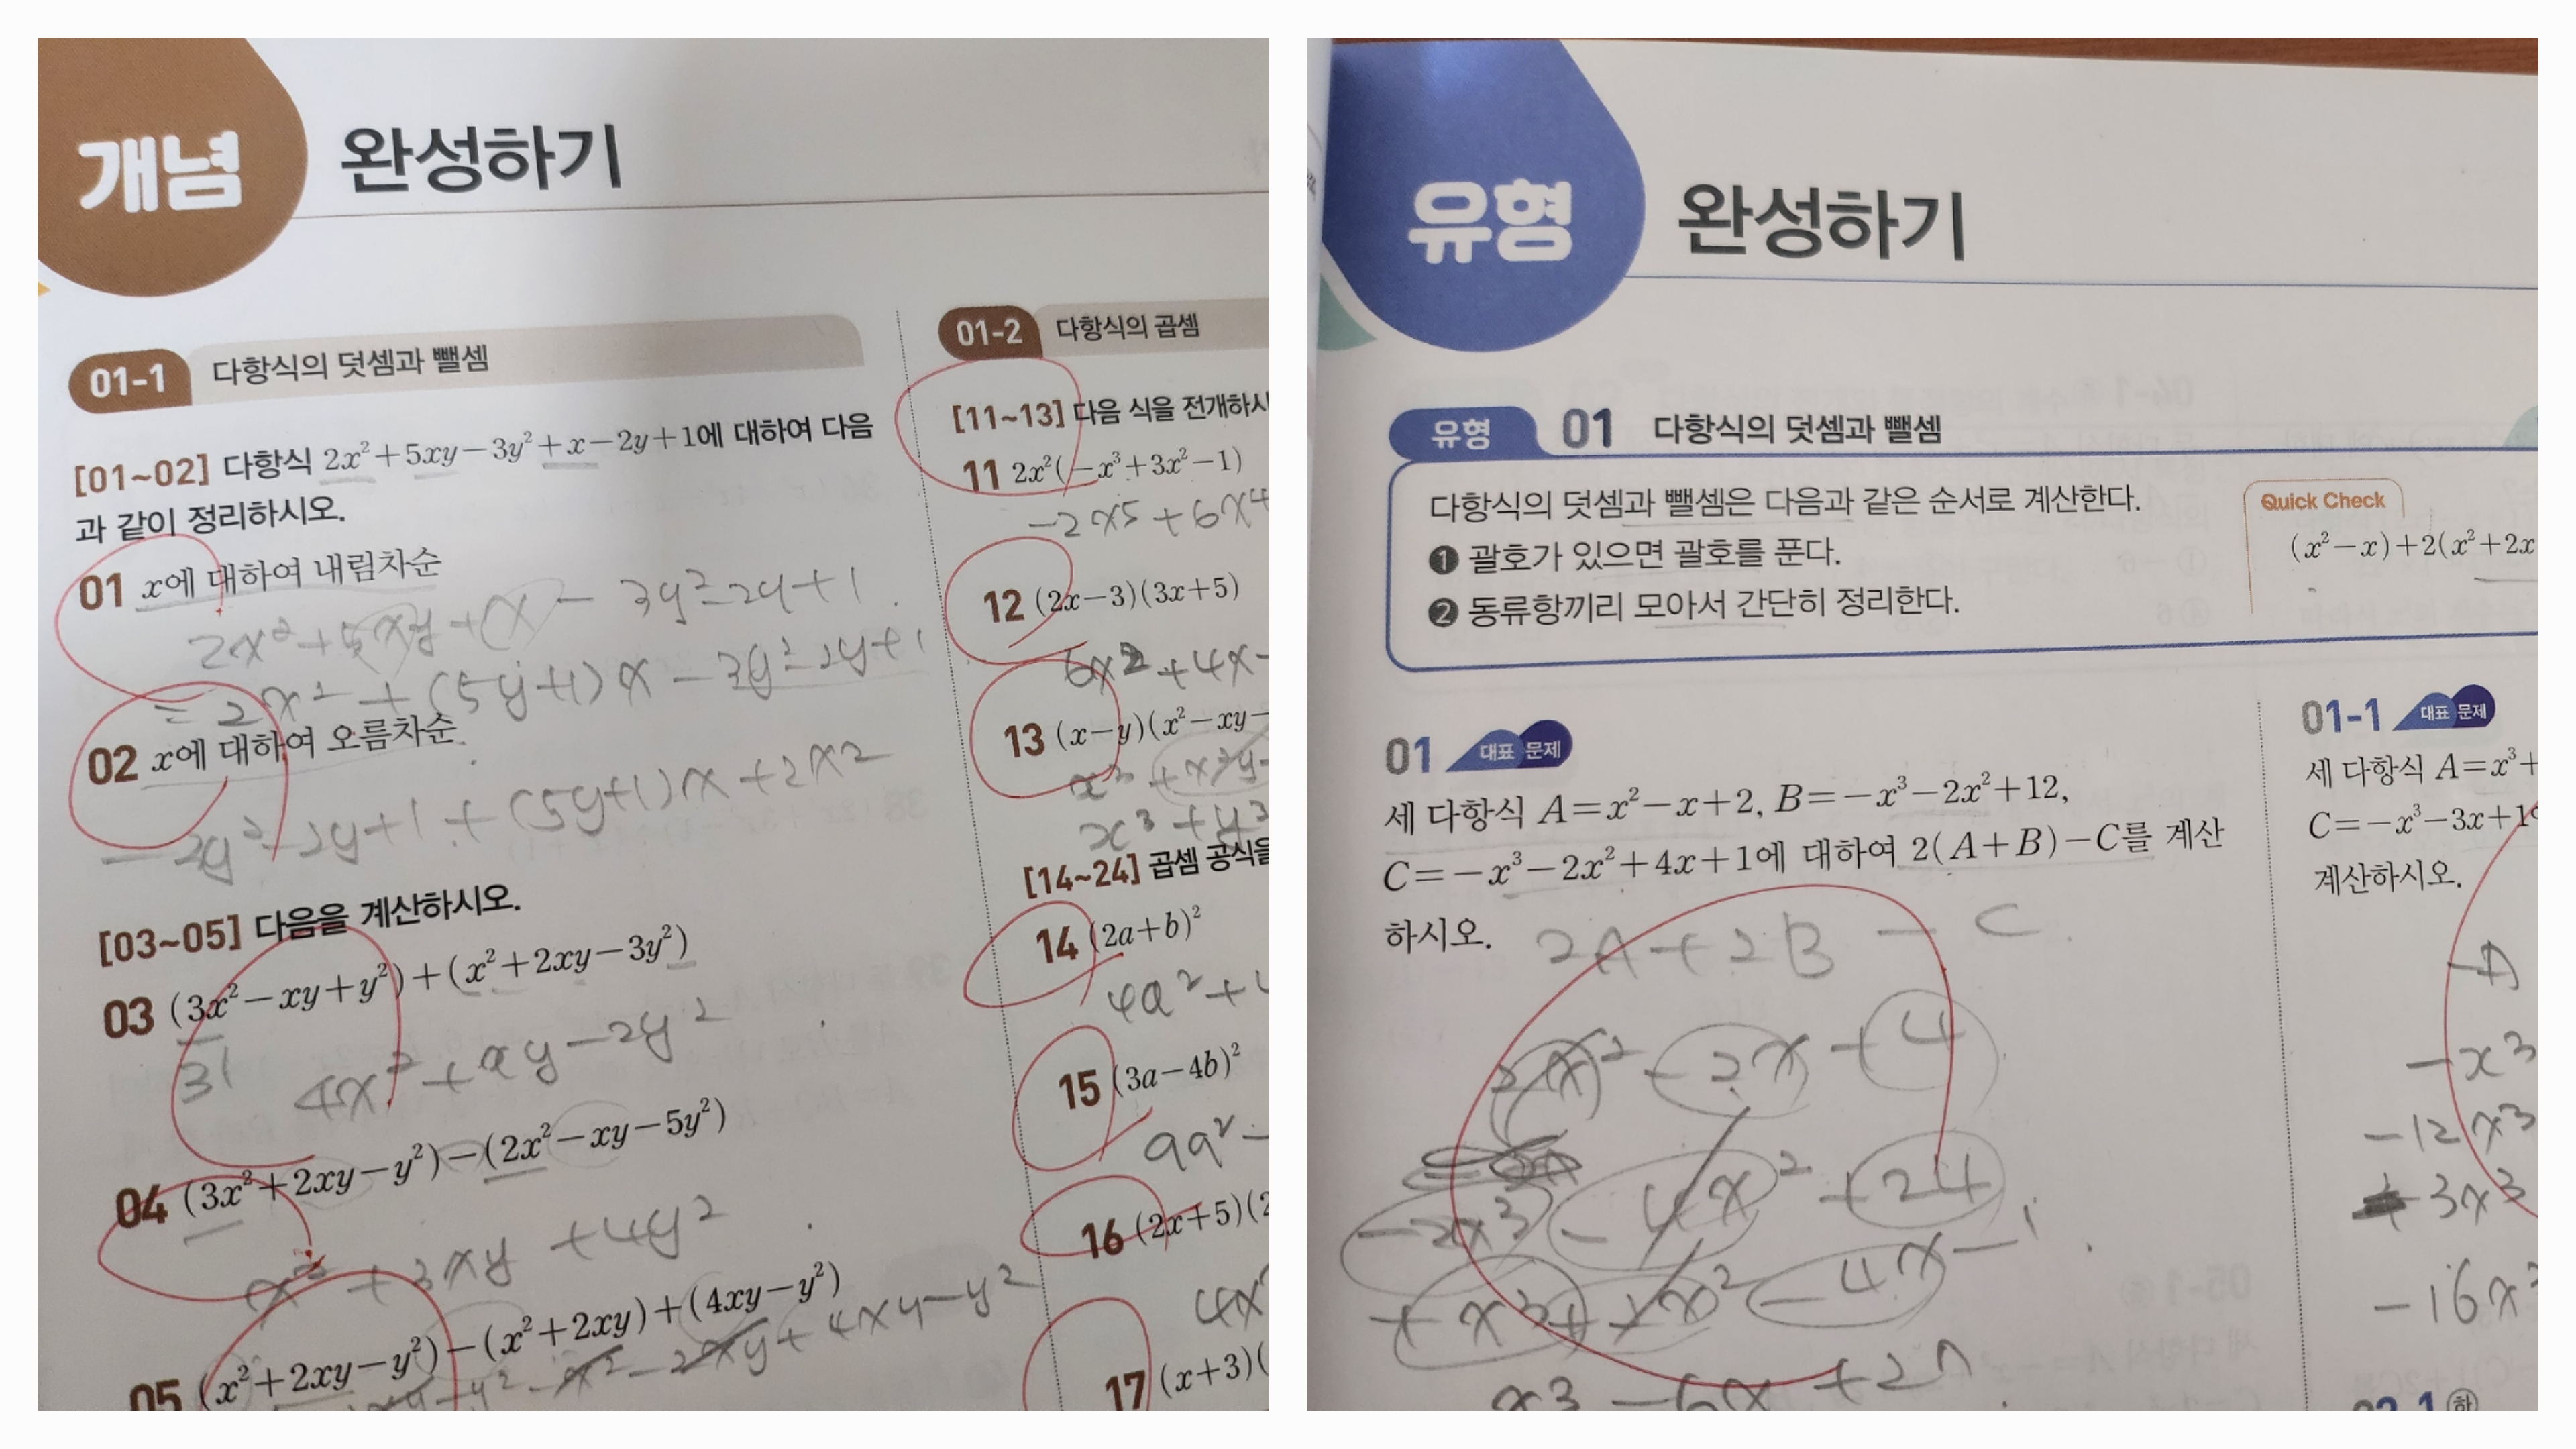 개념 완성하기
01-1 다항식의 덧셈과 뺄셈
[01~02] 다항식 2x²+5xy-3y²+x-2y+1에 대하여 다음
과 같이 정리하시오.
01 x에 대하여 내림차순
2x²+5xy+x-3y²-2y+1
=2x²+(5y+1)x-3y²-2y+1
02 x에 대하여 오름차순
-3y²-2y+1+(5y+1)x+2x²
[03~05] 다음을 계산하시오.
03 (3x²-xy+y²)+(x²+2xy-3y²)
4x²+xy-2y²
04 (3x²+2xy-y²)-(2x²-xy-5y²)
x²+3xy+4y²
05 (x²+2xy-y²)-(x²+2xy)+(4xy-y²)
-y²-x²-2xy+4xy-y²
01-2 다항식의 곱셈
[11~13] 다음 식을 전개하시
11 2x²(-x³+3x²-1)
-2x5+6x4
12 (2x-3)(3x+5)
6x2+4x-
13 (x-y)(x²-xy-
x³+y³
[14~24] 곱셈 공식을
14 (2a+b)²
4a²+
15 (3a-4b)²
9a²-
16 (2x+5)(2
4x
17 (x+3)(
유형 완성하기
유형 01 다항식의 덧셈과 뺄셈
다항식의 덧셈과 뺄셈은 다음과 같은 순서로 계산한다.
❶ 괄호가 있으면 괄호를 푼다.
❷ 동류항끼리 모아서 간단히 정리한다.
Quick Check
(x²-x)+2(x²+2x
01 대표 문제
세 다항식 A=x²-x+2, B=-x³-2x²+12,
C=-x³-2x²+4x+1에 대하여 2(A+B)-C를 계산
하시오.
2A+2B-C
2x²-2x+4
-2x³-4x²+24
+x³+2x²-4x-1
01-1 대표 문제
세 다항식 A=x³+
C=-x³-3x+1
계산하시오.
-A
-x³
-12x³
3x³
-16x